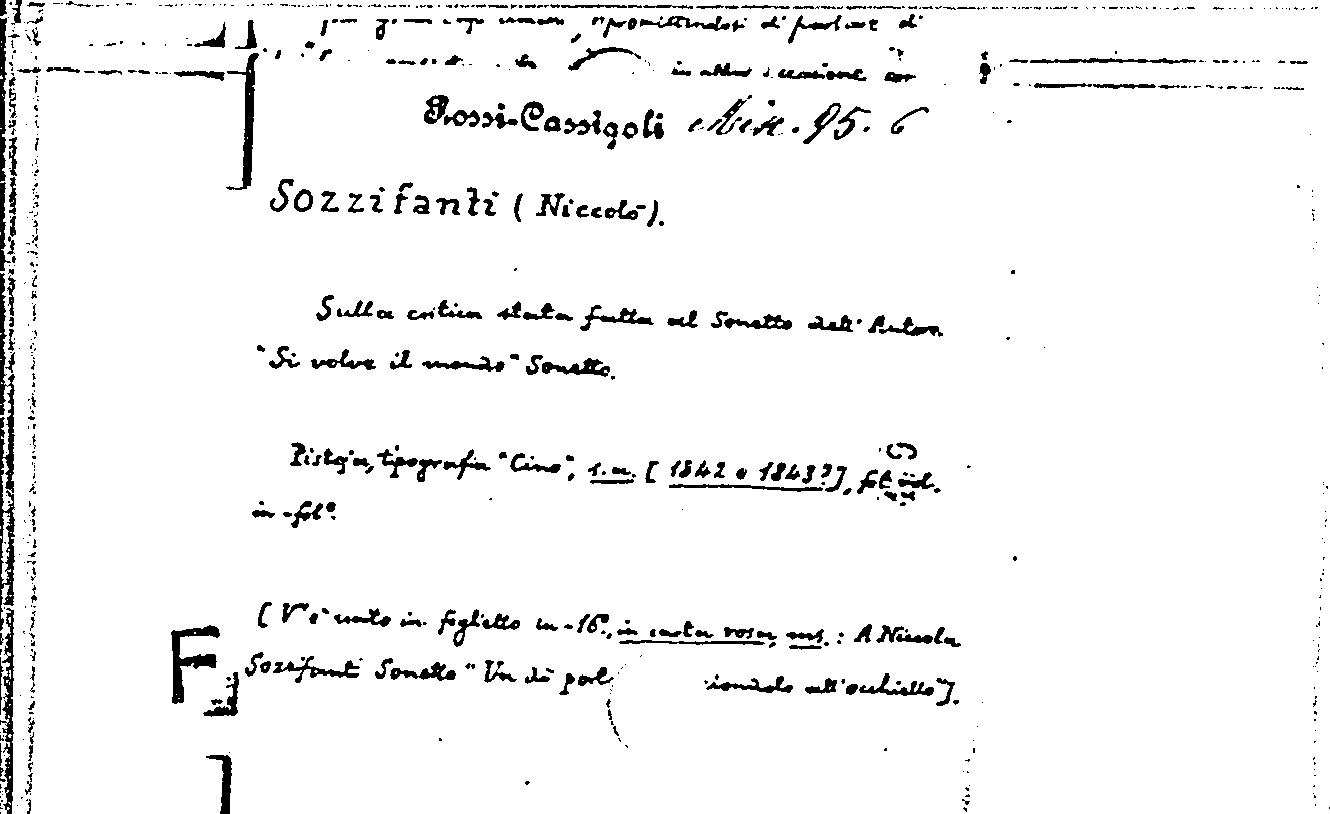 ripromittendosi di parlare di
in altra occasione
Rossi-Cassigoli Misc. 95. 6
Sozzifanti (Niccolò).
Sulla critica stata fatta al Sonetto dell'Autore
"Si volve il mondo" Sonetto.
Pistoja, tipografia "Cino", s.a. [1842 o 1843?], fol. vol.
in-fol°.
[V'è unito in foglietto in-16°., in carta rosa, ms.: A Niccola
Sozzifanti Sonetto "Un dì port all'occhiello"].